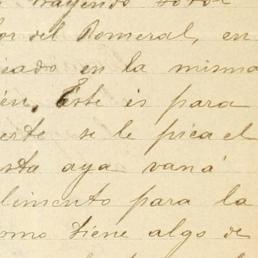 trayendo
or del Romeral, en
iado en la misma
én. Este es para
erte se le pica el
sta aya vaná
limento para la
omo tiene algo de